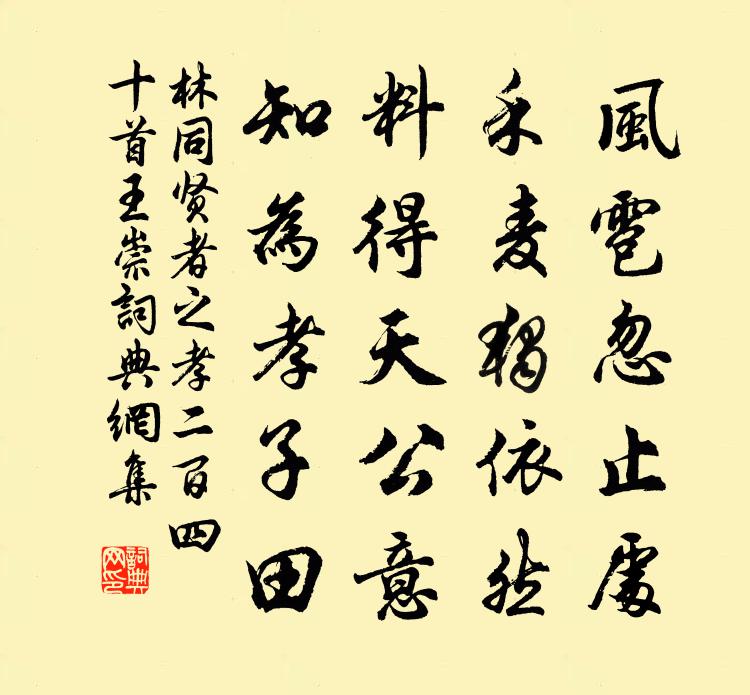 風雹忽止處
禾麦獨依然
料得天公意
知為孝子田
林同贤者之孝二百四
十首王崇詞典網集
詞典网印